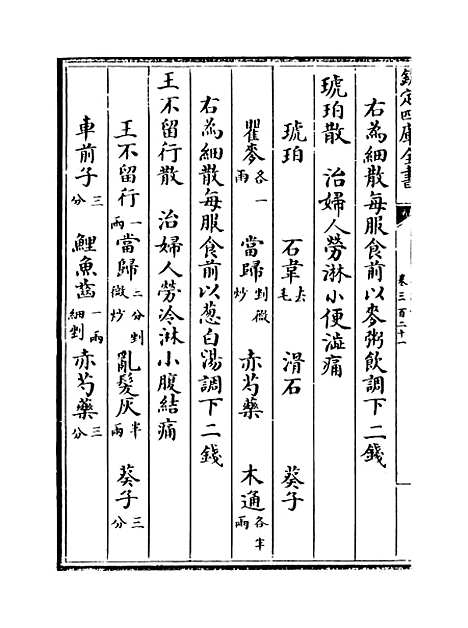 欽定四庫全書
卷三百二十一
右為細散每服食前以麥粥飲調下二錢
琥珀散 治婦人勞淋小便澁痛
琥珀 石韋去毛 滑石 葵子
瞿麥各一兩 當歸剉微炒 赤芍藥 木通各半兩
右為細散每服食前以葱白湯調下二錢
王不留行散 治婦人勞冷淋小腹結痛
王不留行一兩 當歸二分剉微炒 亂髮灰半兩 葵子三分
車前子三分 鯉魚齒一兩細剉 赤芍藥三分